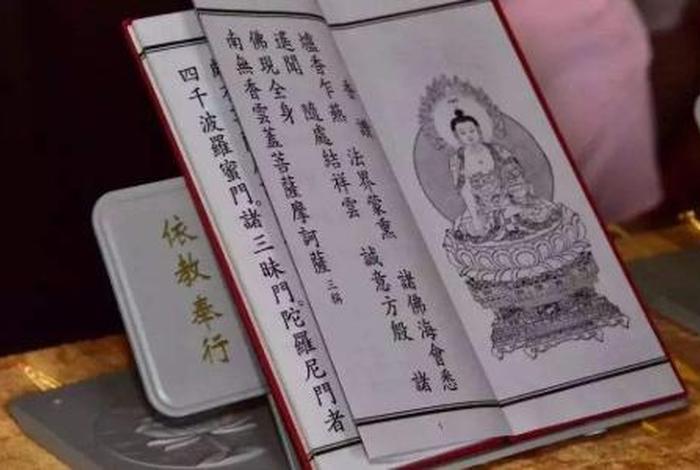 香讚
爐香乍爇 法界蒙熏 諸佛海會悉
遙聞 隨處結祥雲 誠意方殷 諸
佛現全身
南無香雲蓋菩薩摩訶薩 三稱
四千波羅蜜門。諸三昧門。陀羅尼門者
依教奉行